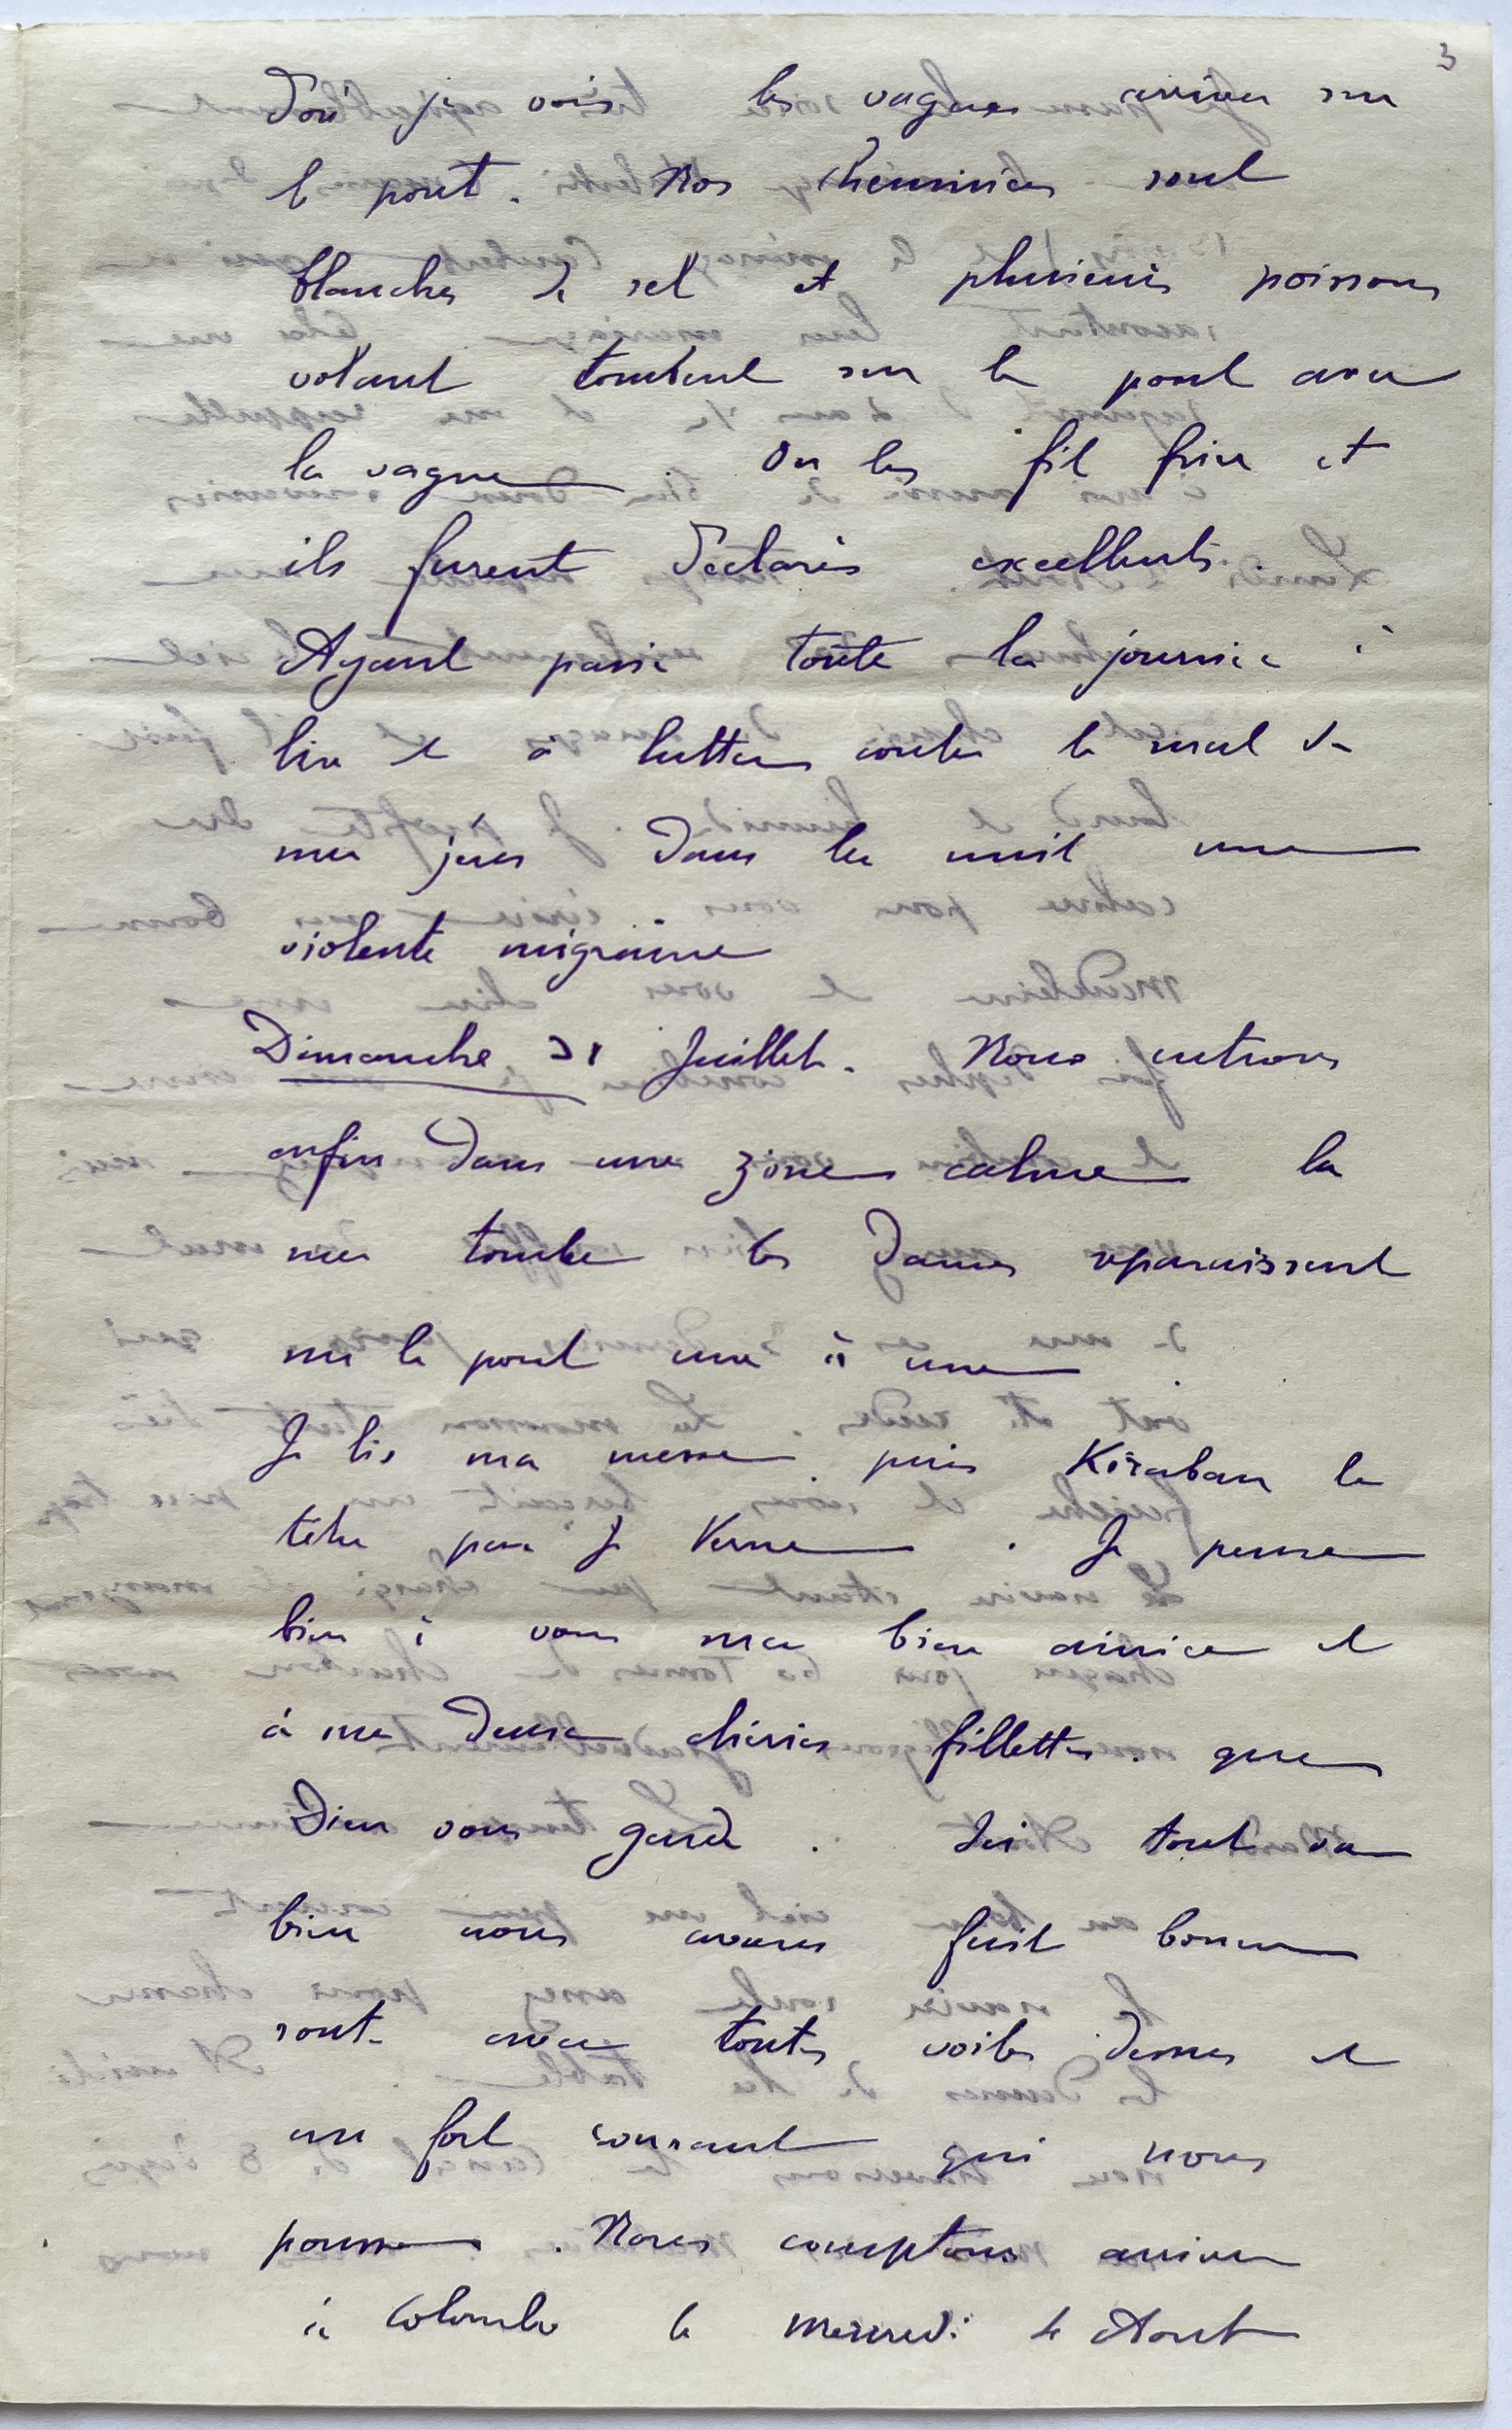 3
d'où je vois les vagues arriver sur
le pont. Nos cheminées sont
blanches de sel et plusieurs poissons
volant tombent sur le pont avec
la vague. On les fit frire et
ils furent déclarés excellents.
Ayant passé toute la journée à
lire et à lutter contre le mal de
mer j'eus dans la nuit une
violente migraine
Dimanche 31 Juillet. Nous entrons
enfin dans une zone calme la
mer tombe les dames reparaissent
sur le pont une à une.
Je lis ma messe puis Kéraban le
têtu par J Verne. Je pense
bien à vous ma bien aimée et
à mes deux chéries fillettes. que
Dieu vous garde. Ici tout va
bien nous avons fait bonne
route avec toutes voiles dessus et
un fort courant qui nous
pousse. Nous comptons arriver
à Colombo le mercredi Aout